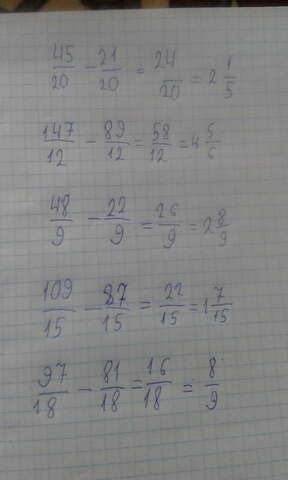 45/20 - 21/20 = 24/20 = 2 1/5
147/12 - 89/12 = 58/12 = 4 5/6
48/9 - 22/9 = 26/9 = 2 8/9
109/15 - 87/15 = 22/15 = 1 7/15
97/18 - 81/18 = 16/18 = 8/9